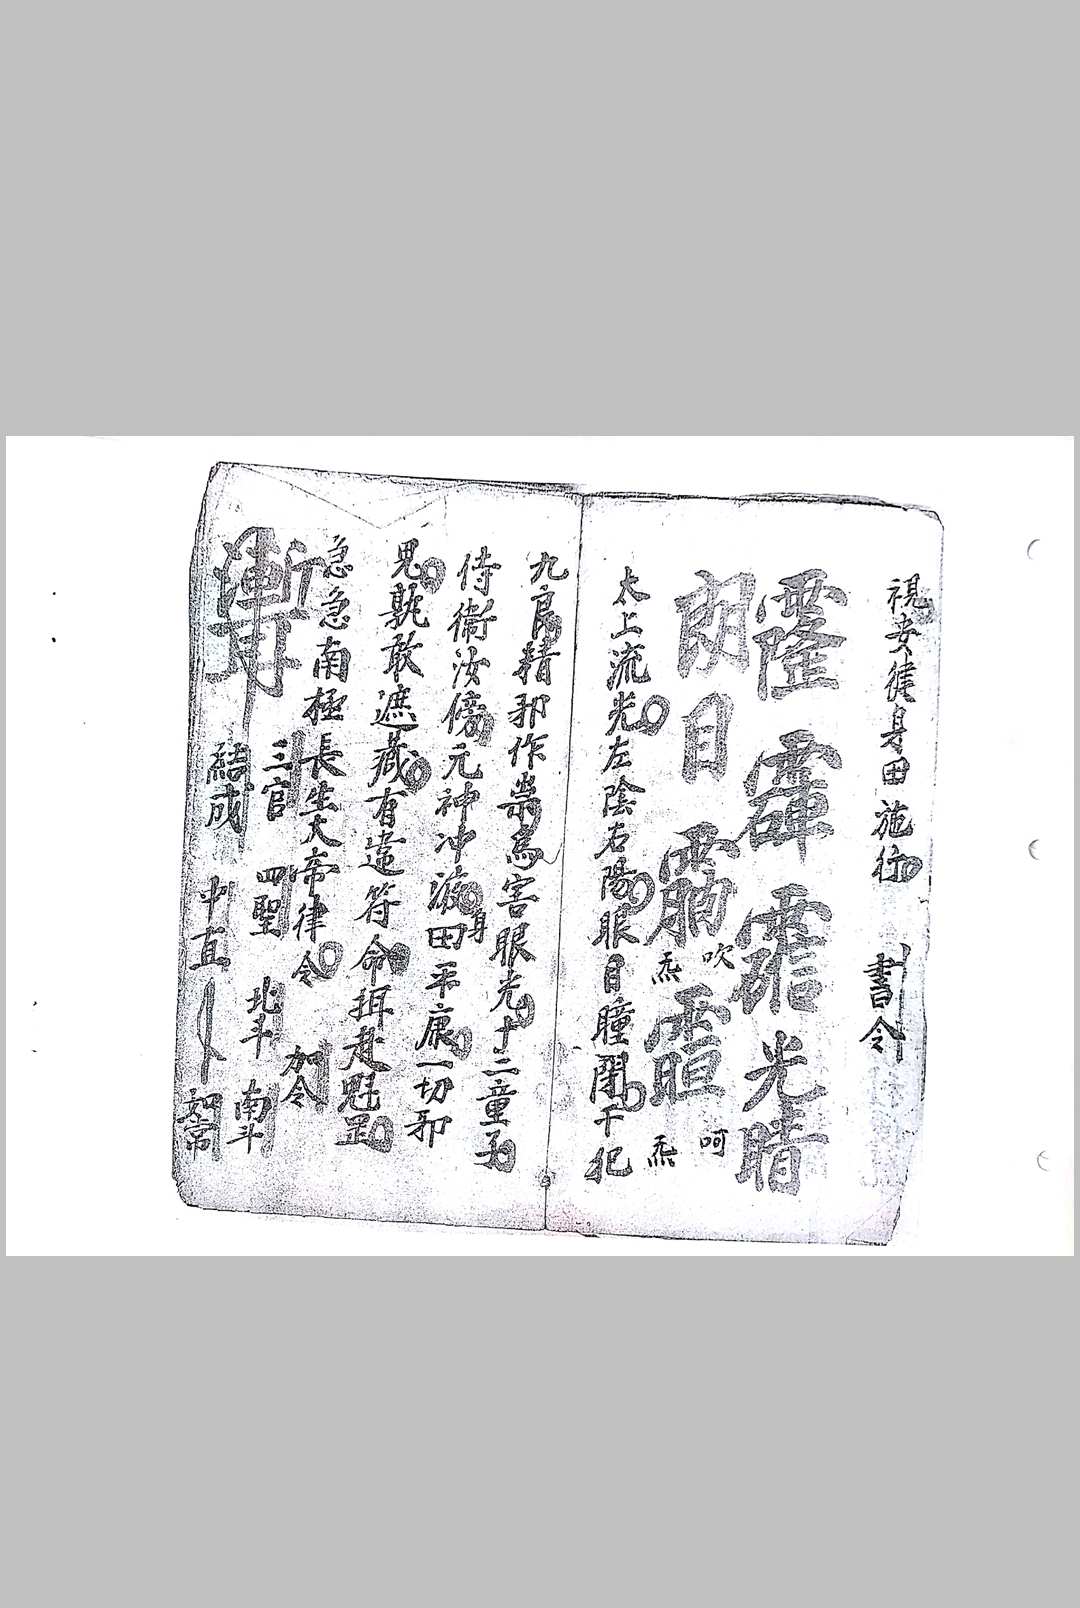 視安徒身田施行 書令
光晴
朗目
吹 呵
炁 炁
太上流光左陰右陽眼目瞳閉干犯
九良精邪作祟為害眼光十二童子
侍衛汝傍元神冲源身田平康一切邪
鬼孰敢遮藏有違符命押赴魁罡
急急南極長生大帝律令 加令
三官 四聖 北斗 南斗
結成 中直 如常